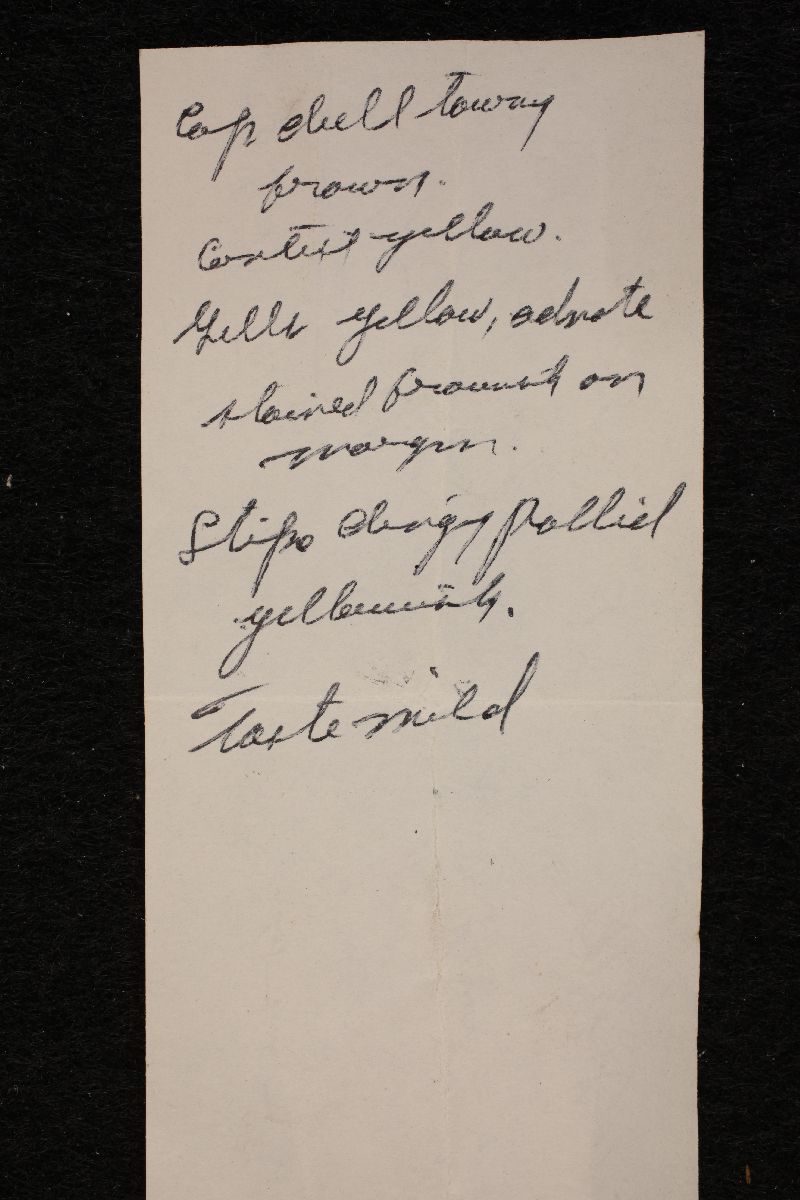 Cap dull tawny
brown.
Context yellow.
Gills yellow, adnate
stained brownish on
margin.
Stipe dingy pallid
yellowish.
Taste mild